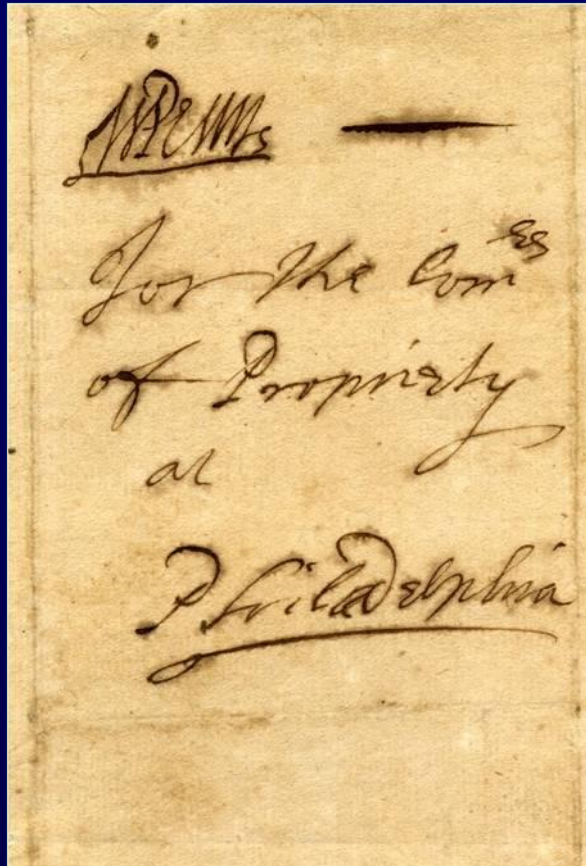 WPenn
for the Com^rs
of Propriety
at
Philadelphia